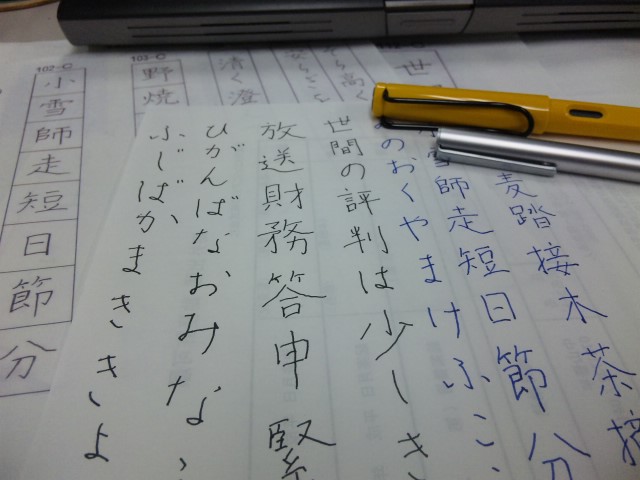 麦踏接木茶摘
雪師走短日節分
のおくやまけふこ
世間の評判は少しき
放送財務答申緊
ひがんばなおみな
ふじばかまききょ
世
そら高く
清く澄
103-C
野焼
102-C
小雪師走短日節分